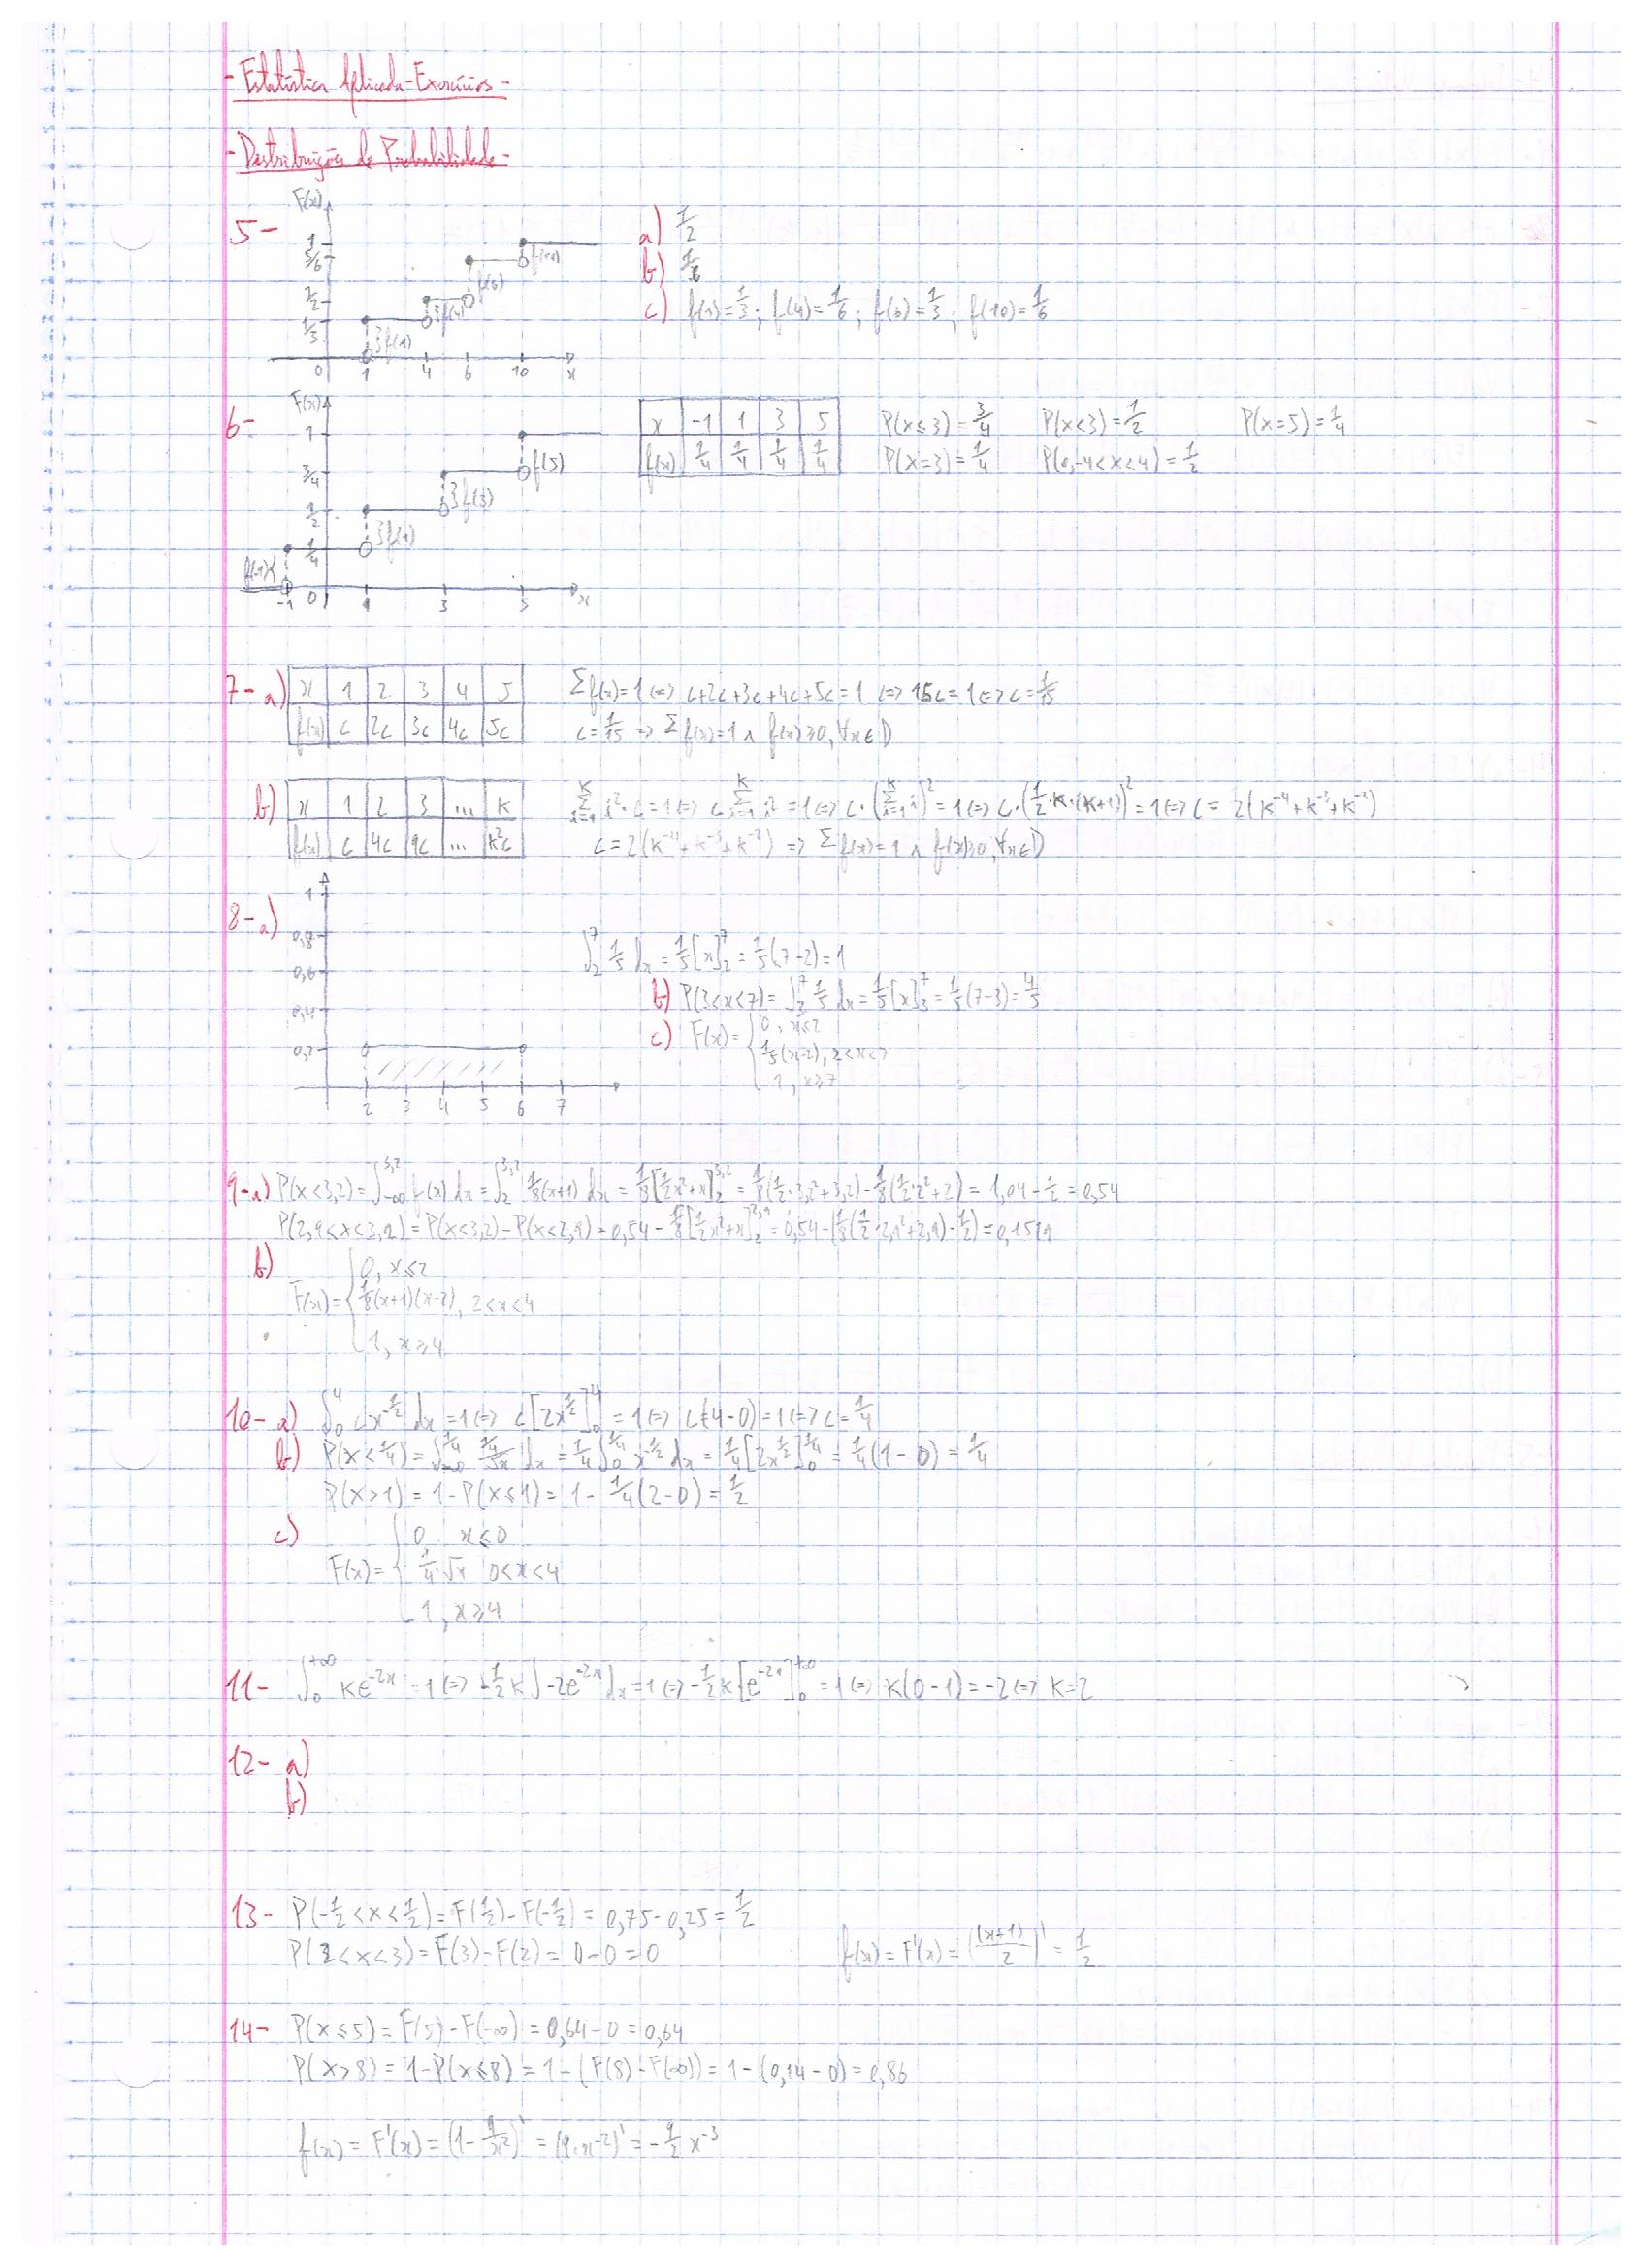 - Estatística Aplicada - Exercícios -
- Distribuições de Probabilidade -
5-
F(x)
1
5/6
1/2
1/3
0 1 4 6 10 x
f(1) f(4) f(6) f(10)
a) 1/2
b) 1/6
c) f(1)=1/3; f(4)=1/6; f(6)=1/3; f(10)=1/6
6-
F(x)
1
3/4
1/2
1/4
-1 0 1 3 5 x
f(-1) f(1) f(3) f(5)
x -1 1 3 5
f(x) 1/4 1/4 1/4 1/4
P(x≤3)=3/4 P(x<3)=1/2 P(x=5)=1/4
P(x=3)=1/4 P(0,-4<x<4)=1/2
7- a) x 1 2 3 4 5
f(x) c 2c 3c 4c 5c
Σf(x)=1 <=> c+2c+3c+4c+5c=1 <=> 15c=1 <=> c=1/15
c=1/15 => Σf(x)=1 ∧ f(x)≥0, ∀x∈D
b) x 1 2 3 ... k
f(x) c 4c 9c ... k²c
Σ_{i=1}^{k} i²·c=1 <=> c Σ_{i=1}^{k} i²=1 <=> c·(Σ_{i=1}^{k} i)²=1 <=> c·(1/2·k·(k+1))²=1 <=> c=2(k⁻⁴+k⁻³+k⁻²)
c=2(k⁻⁴+k⁻³+k⁻²) => Σf(x)=1 ∧ f(x)≥0, ∀x∈D
8- a)
1
0,8
0,6
0,4
0,2
2 3 4 5 6 7
∫₂⁷ 1/5 dx = 1/5[x]₂⁷ = 1/5(7-2)=1
b) P(3<x<7)=∫₃⁷ 1/5 dx = 1/5[x]₃⁷ = 1/5(7-3)=4/5
c) F(x)= { 0, x≤2
1/5(x-2), 2<x<7
1, x≥7
9- a) P(x<3,2)=∫_{-∞}^{3,2} f(x) dx = ∫₂^{3,2} 1/8(x+1) dx = 1/8[1/2x²+x]₂^{3,2} = 1/8(1/2·3,2²+3,2)-1/8(1/2·2²+2) = 1,04-1/2=0,54
P(2,9<x<3,2)=P(x<3,2)-P(x<2,9)=0,54-1/8[1/2x²+x]₂^{2,9}=0,54-(1/8(1/2·2,9²+2,9)-1/2)=0,1519
b)
F(x)= { 0, x≤2
1/8(x+1)(x-2), 2<x<4
1, x≥4
10- a) ∫₀⁴ cx^{-1/2} dx=1 <=> c[2x^{1/2}]₀⁴=1 <=> c(4-0)=1 <=> c=1/4
b) P(x<1/4)=∫_{-∞}^{1/4} (1/4)/√x dx = 1/4∫₀^{1/4} x^{-1/2} dx = 1/4[2x^{1/2}]₀^{1/4} = 1/4(1-0)=1/4
P(x>1)=1-P(x≤1)=1-1/4(2-0)=1/2
c)
F(x)= { 0, x≤0
1/4√x 0<x<4
1, x≥4
11- ∫₀^{+∞} ke^{-2x}=1 <=> -1/2k∫-2e^{-2x}dx=1 <=> -1/2k[e^{-2x}]₀^{+∞}=1 <=> k(0-1)=-2 <=> k=2
12- a)
b)
13- P(-1/2<x<1/2)=F(1/2)-F(-1/2)=0,75-0,25=1/2
P(2<x<3)=F(3)-F(2)=0-0=0
f(x)=F'(x)=((x+1)/2)'=1/2
14- P(x≤5)=F(5)-F(-∞)=0,64-0=0,64
P(x>8)=1-P(x≤8)=1-(F(8)-F(∞))=1-(0,14-0)=0,86
f(x)=F'(x)=(1-9/x²)'=(9·x⁻²)'=-9/2x⁻³